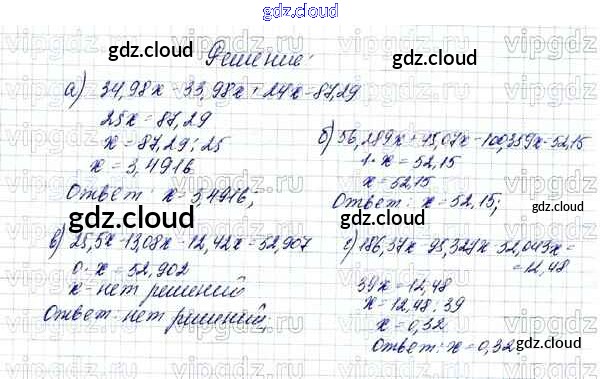 gdz.cloud
gdz.cloud
gdz.cloud
Решение:
а) 34,98x - 33,98x + 24x = 87,29
25x = 87,29
x = 87,29 : 25
x = 3,4916
Ответ: x = 3,4916;
б) 56,289x + 45,07x - 100,359x = 52,15
1 · x = 52,15
x = 52,15
Ответ: x = 52,15;
gdz.cloud
gdz.cloud
в) 25,5x - 13,08x - 12,42x = 52,907
0 · x = 52,902
x - нет решений
Ответ: нет решений;
г) 186,37x - 95,327x - 52,043x =
= 12,48
39x = 12,48
x = 12,48 : 39
x = 0,32
Ответ: x = 0,32.
gdz.cloud
gdz.cloud